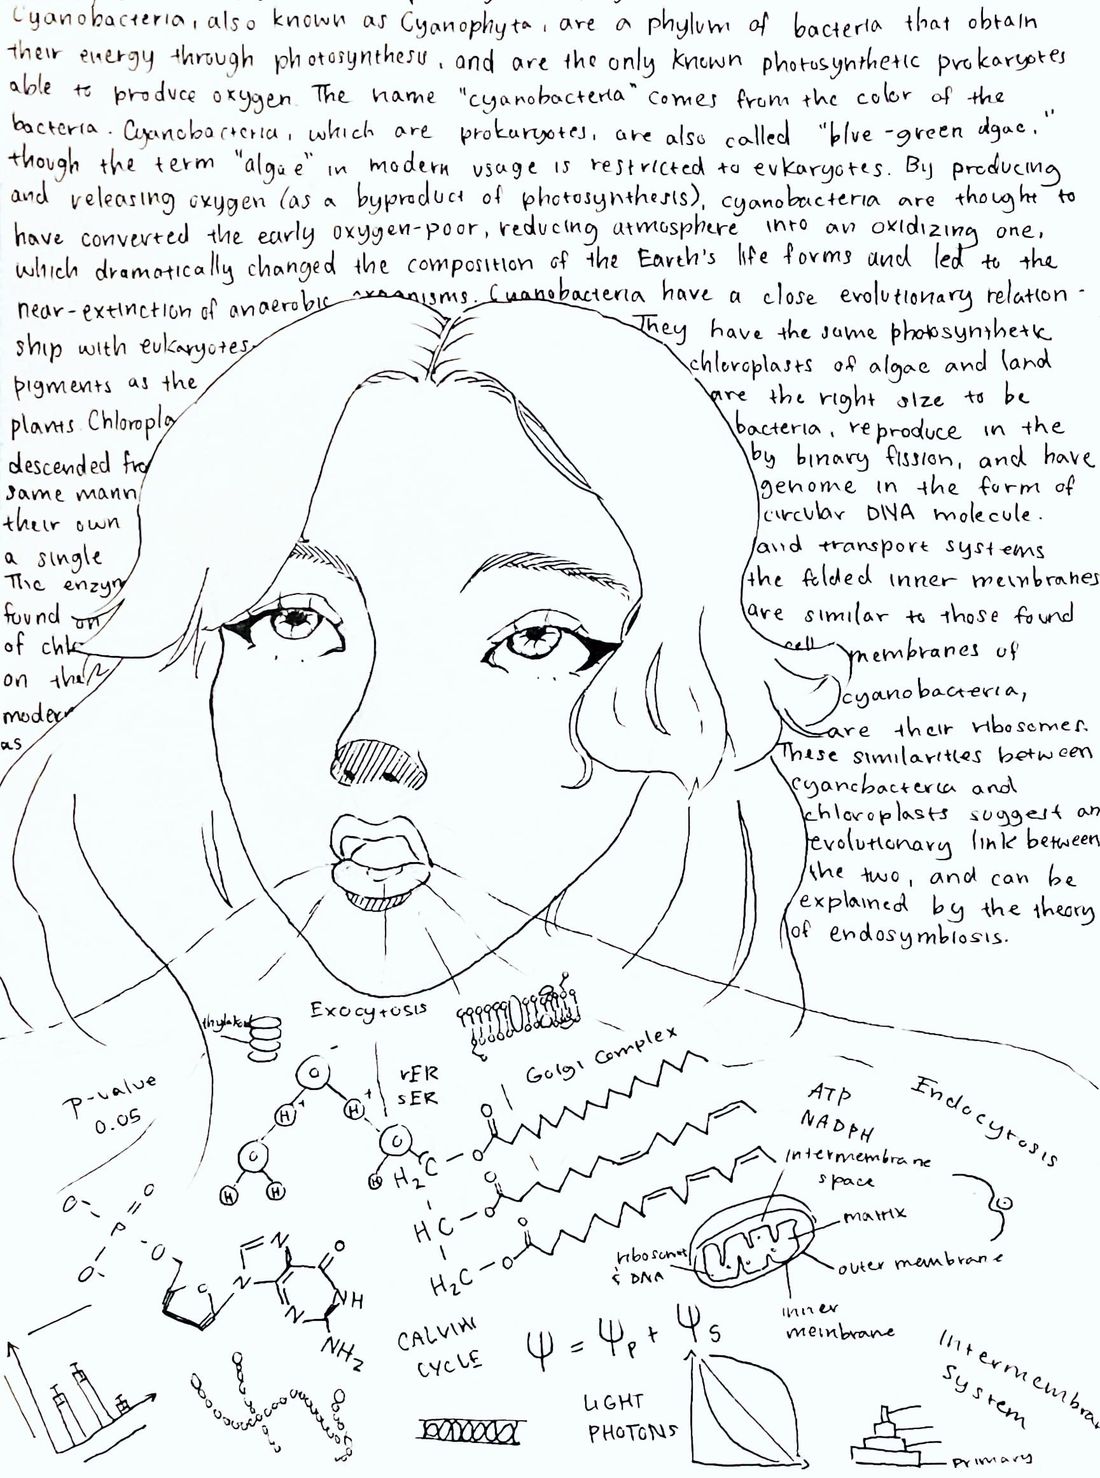 Cyanobacteria, also known as Cyanophyta, are a phylum of bacteria that obtain
their energy through photosynthesis, and are the only known photosynthetic prokaryotes
able to produce oxygen. The name "cyanobacteria" comes from the color of the
bacteria. Cyanobacteria, which are prokaryotes, are also called "blue-green algae,"
though the term "algae" in modern usage is restricted to eukaryotes. By producing
and releasing oxygen (as a byproduct of photosynthesis), cyanobacteria are thought to
have converted the early oxygen-poor, reducing atmosphere into an oxidizing one,
which dramatically changed the composition of the Earth's life forms and led to the
near-extinction of anaerobic organisms. Cyanobacteria have a close evolutionary relation-
ship with eukaryotes. They have the same photosynthetic
pigments as the chloroplasts of algae and land
plants. Chloropla are the right size to be
descended fro bacteria, reproduce in the
same mann by binary fission, and have
their own genome in the form of
a single circular DNA molecule.
The enzym and transport systems
found on the folded inner membranes
of chl are similar to those found
on the cell membranes of
modern cyanobacteria,
as are their ribosomes.
These similarities between
cyanobacteria and
chloroplasts suggest an
evolutionary link between
the two, and can be
explained by the theory
of endosymbiosis.
Exocytosis
thylakoid
rER
sER
Golgi Complex
P-value
0.05
ATP
NADPH
Endocytosis
intermembrane
space
matrix
outer membrane
ribosomes
& DNA
inner
membrane
O
H + H +
O O
H H H
H2C O O
HC O O
H2C O O
O O
P
O O
O
N N O
N N NH
NH2
CALVIN
CYCLE
Ψ = Ψp + Ψs
LIGHT
PHOTONS
Intermembra
System
Primary